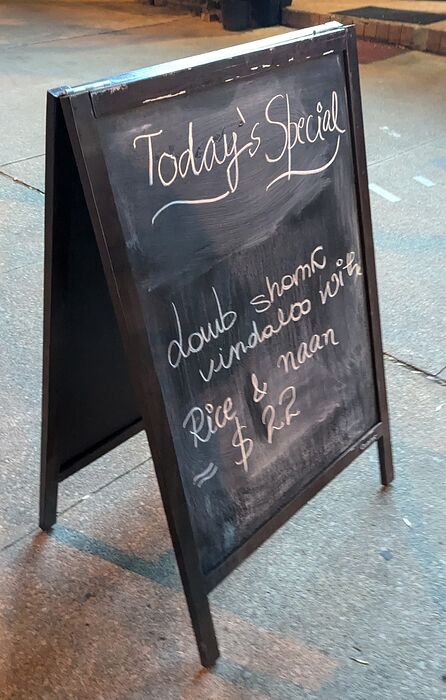 Today's Special
doub shank
vindaloo with
Rice & naan
= $22